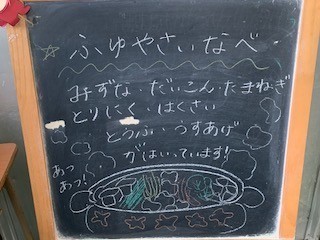 ふゆやさいなべ
みずな・だいこん・たまねぎ
とりにく・はくさい
とうふ・うすあげ
がはいっています!!
あっ
あっ!